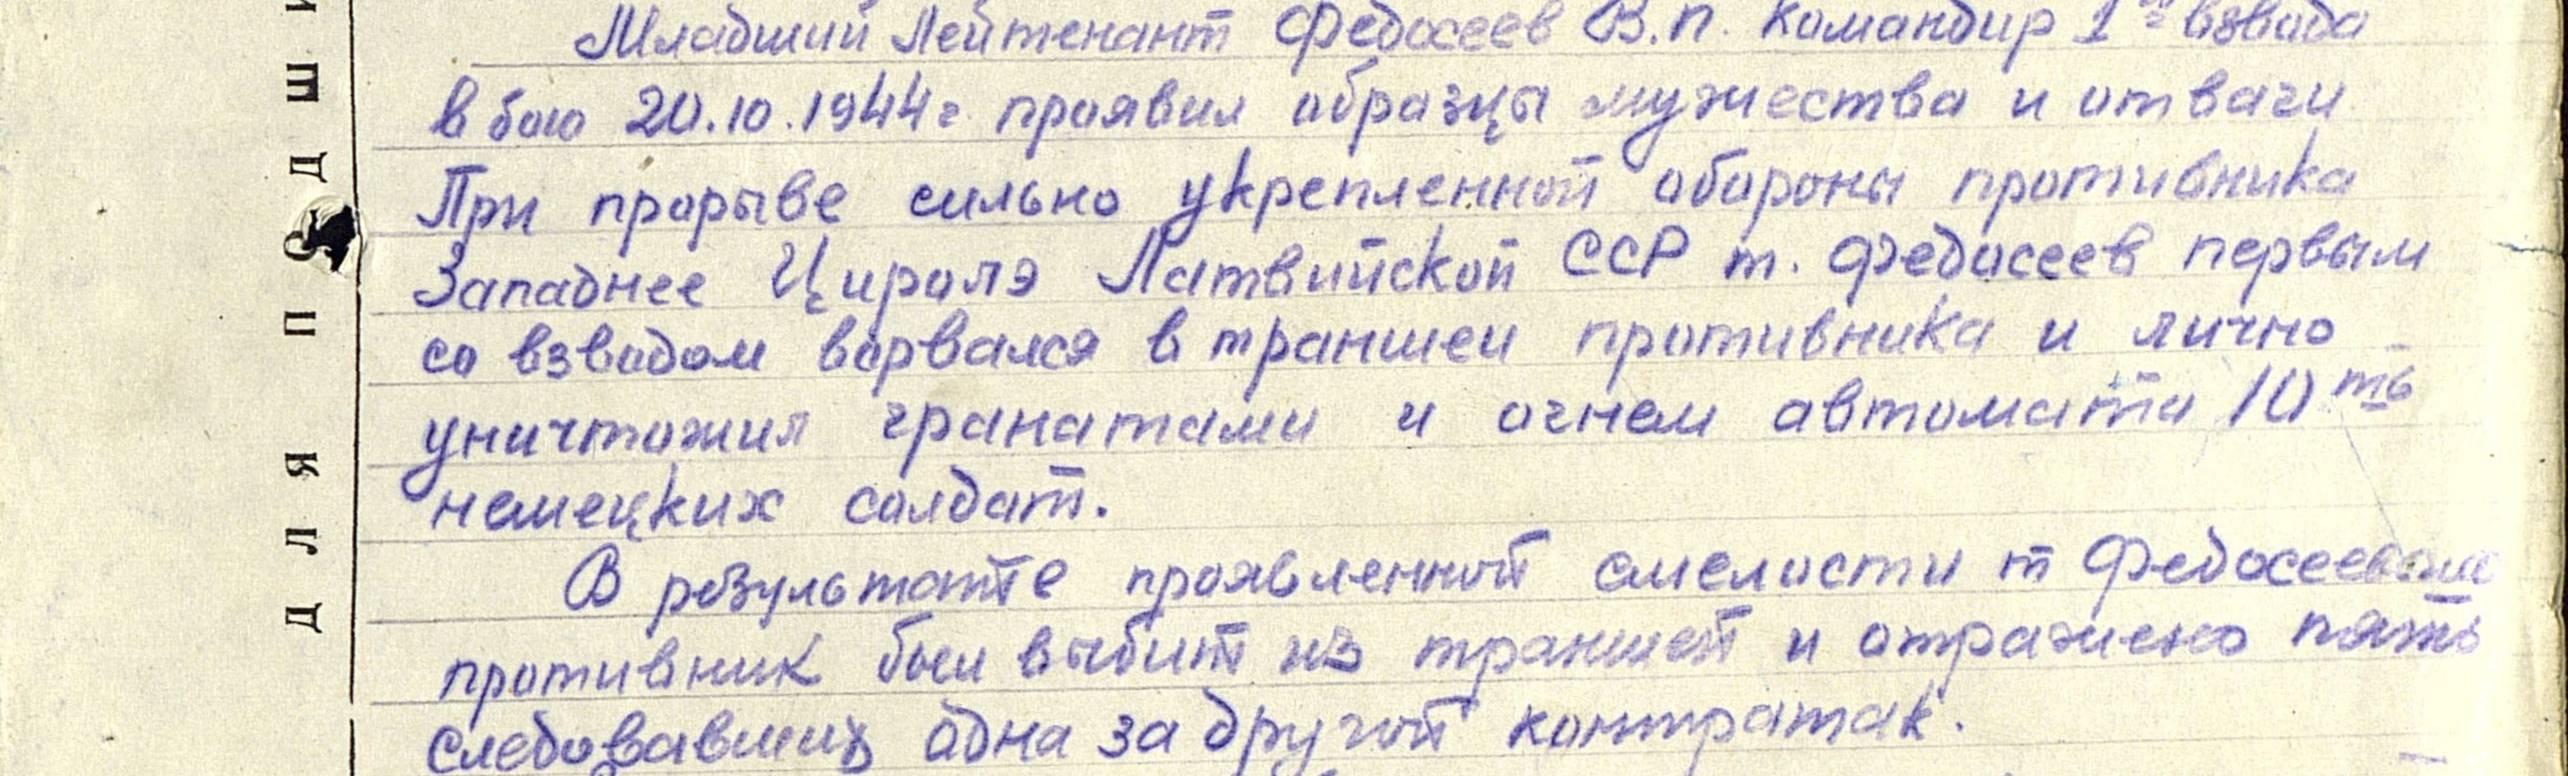 Младший Лейтенант Федосеев В.П. Командир 1го взвода
в бою 20.10.1944г. проявил образцы мужества и отваги
При прорыве сильно укрепленной обороны противника
Западнее Циролэ Латвийской ССР т. Федосеев первым
со взводом ворвался в траншеи противника и лично
уничтожил гранатами и огнем автомата 10ть
немецких солдат.
В результате проявленной смелости т Федосеевым
противник был выбит из траншей и отражено пять
следовавших одна за другой контратак.
ДЛЯ ПОДШИ